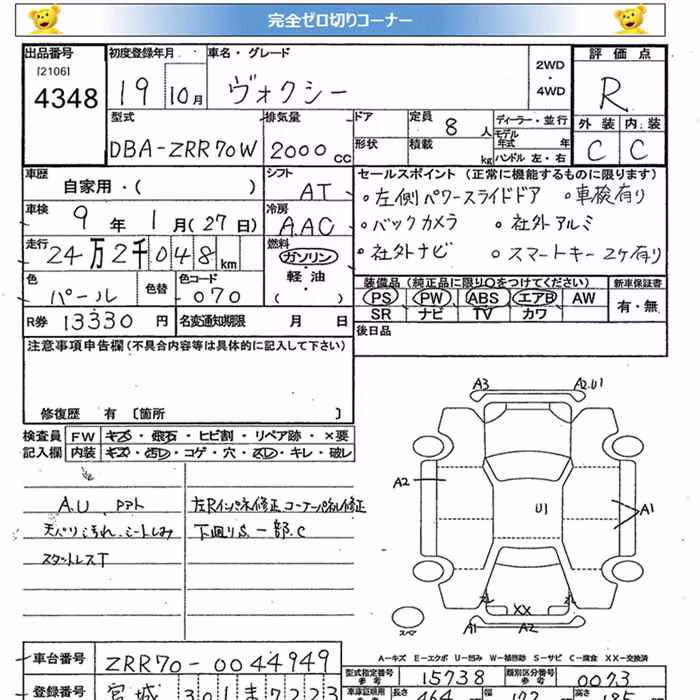 完全ゼロ切りコーナー
出品番号 初度登録年月 車名・グレード 2WD・4WD 評価点
[2106]
4348 19 10月 ヴォクシー R
型式 排気量 ドア 定員 8人 ディーラー・並行 外装 内装
DBA-ZRR70W 2000cc 形状 積載 kg モデル年式 年 ハンドル 左・右 C C
車歴 自家用・( ) シフト AT セールスポイント(正常に機能するものに限ります)
・左側パワースライドドア ・車検有り
車検 9年1月(27日) 冷房 AAC ・バックカメラ ・社外アルミ
走行 24万2千048km 燃料 ガソリン 軽油・( ) ・社外ナビ ・スマートキー2ヶ有り
色 パール 色替 色コード 070
装備品(純正品に限り○をつけてください) 新車保証書
PS PW ABS エアB AW 有・無
SR ナビ TV カワ
R券 13330円 名変通知期限 月 日 後日品
注意事項申告欄(不具合内容等は具体的に記入して下さい)
修復歴 有〔箇所 〕
検査員 FW キズ・飛石・ヒビ割・リペア跡・×要
記入欄 内装 キズ・汚レ・コゲ・穴・スレ・キレ・破レ
A.U
天バリ汚れ、シートしみ
スタットレスT
左Rインパネ修正、コーナーパネル修正
下回りS、一部C
A3 A2.U1
A2 U1 A1
XX
スペア A1 A2
A-キズ E-エクボ U-凹み W-補修跡 S-サビ C-腐食 XX-交換済
車台番号 ZRR70-0044949 型式指定番号 参考 15738 類別区分番号 参考 0073
登録番号 宮城 301 ま 7223 車庫証明用 長さ 464 幅 172 高さ 185